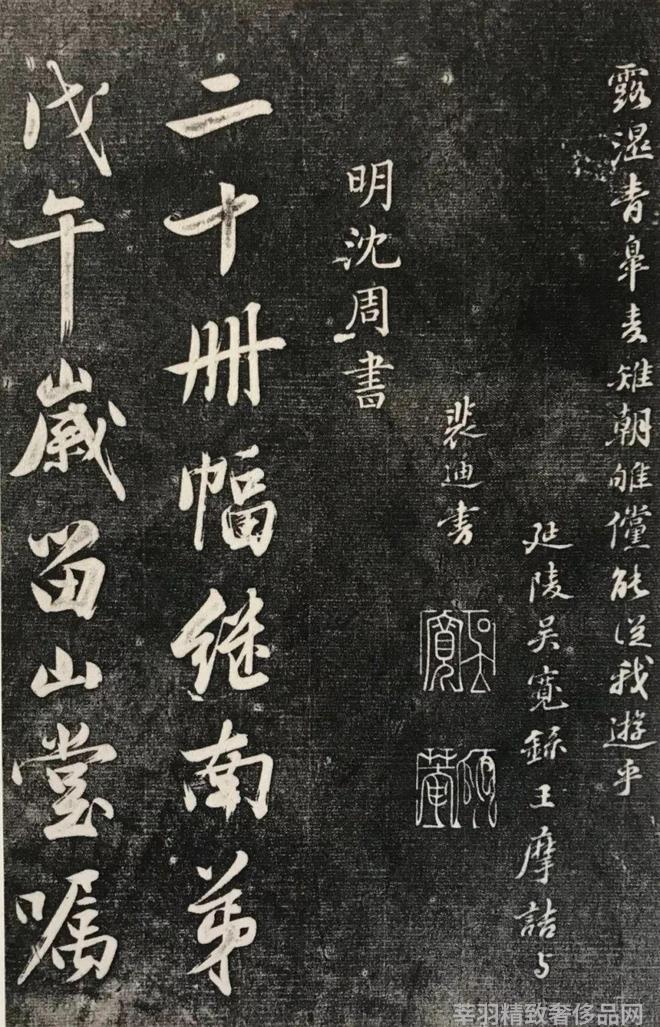 露湿青皋麦雉朝雊儻能從我遊乎
延陵吴寬録王摩詰与
裴迪書
吴寬
明沈周書
二十册幅继南弟
戊午歲留山堂嘱
莘羽精致奢侈品网